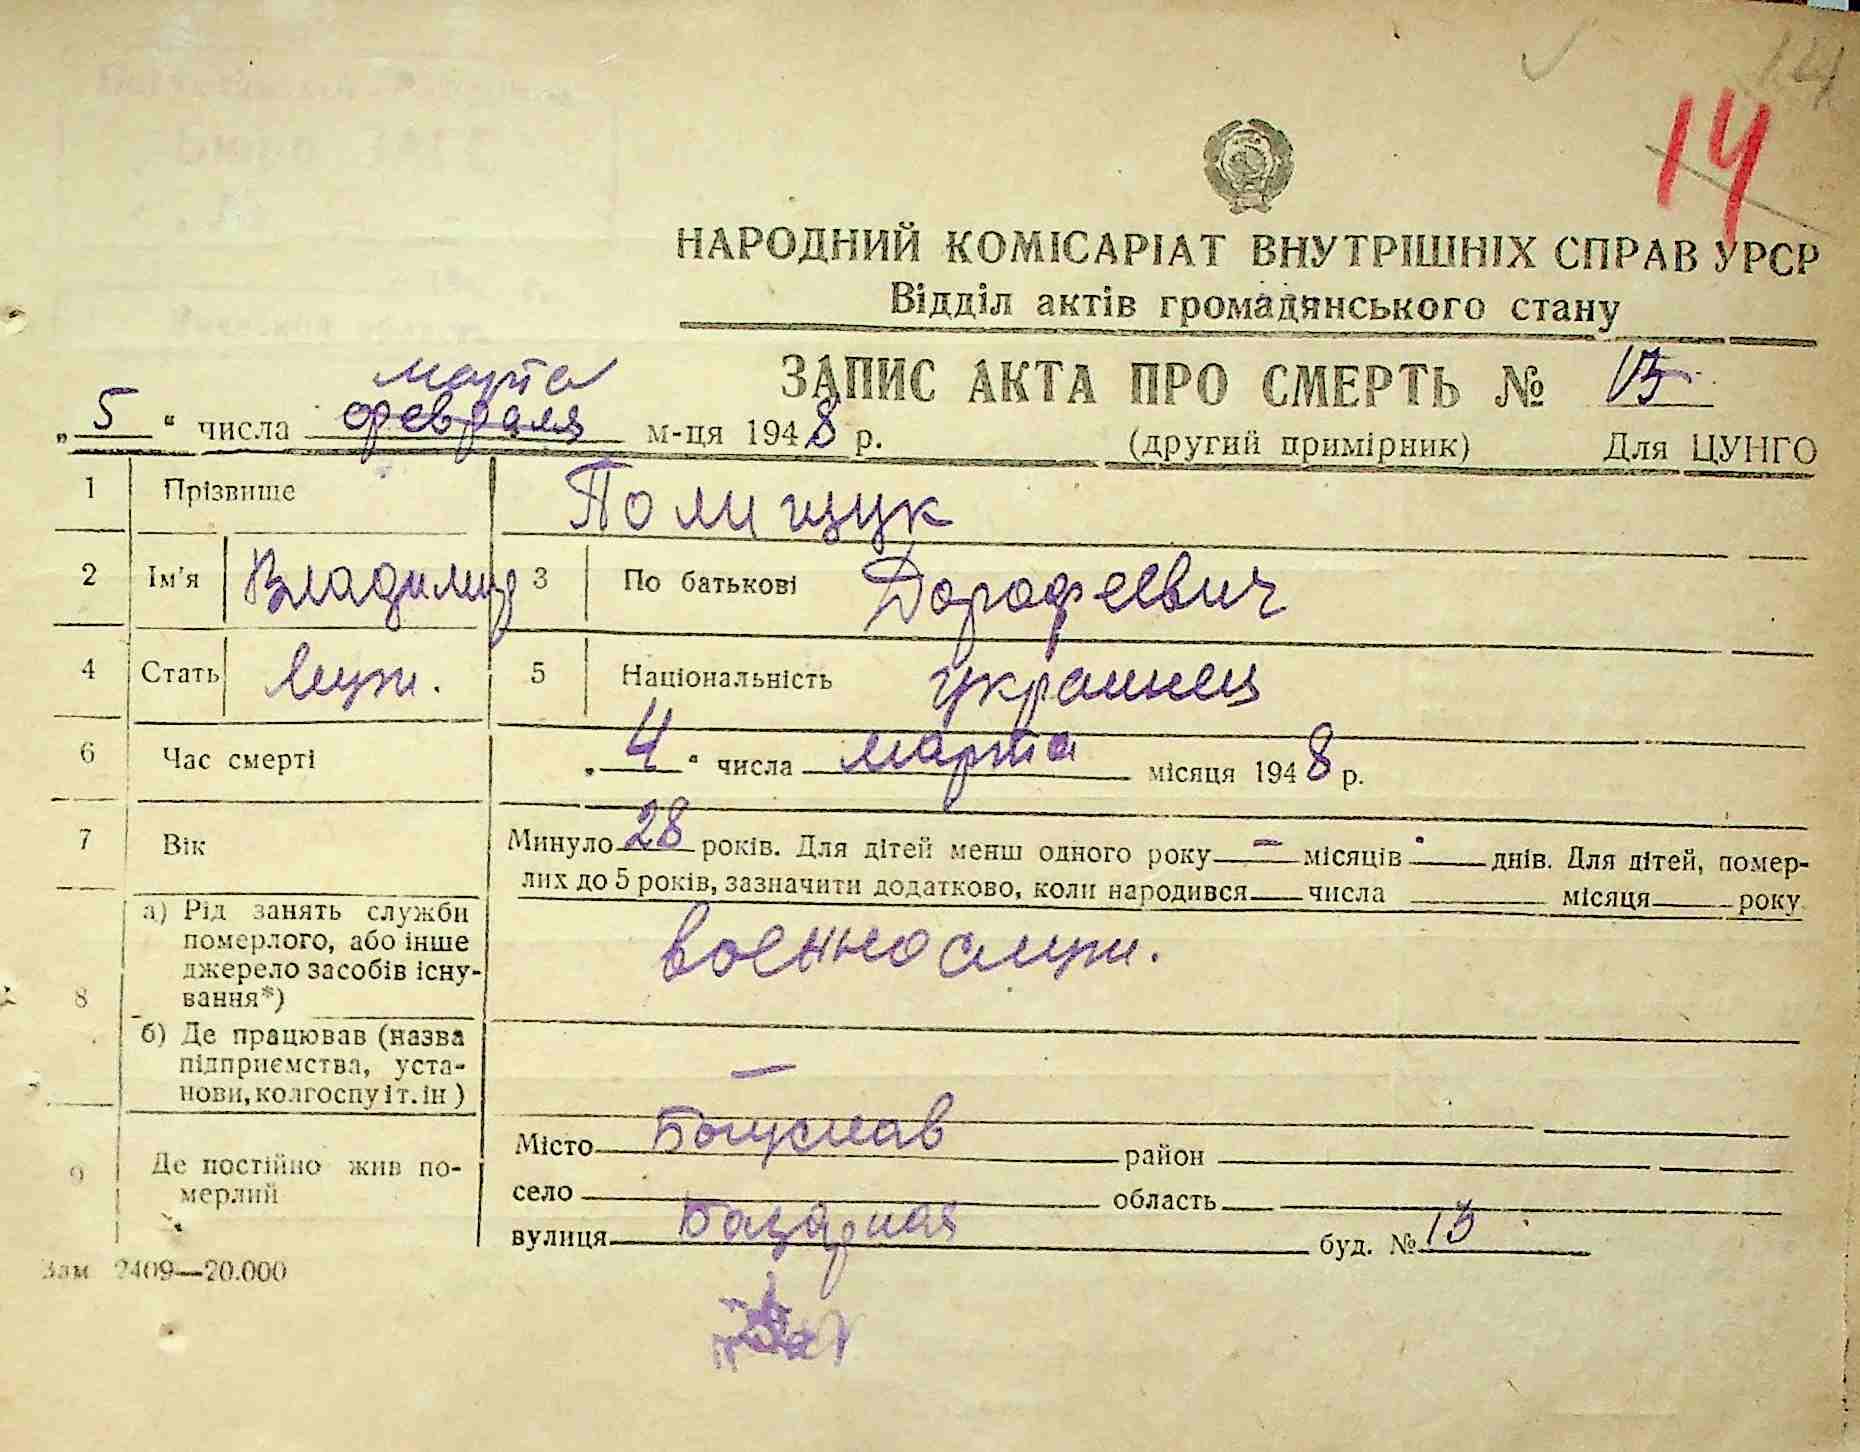 14
14
НАРОДНИЙ КОМІСАРІАТ ВНУТРІШНІХ СПРАВ УРСР
Відділ актів громадянського стану
ЗАПИС АКТА ПРО СМЕРТЬ № 13
марта
„5“ числа февраля м-ця 1948 р. (другий примірник) Для ЦУНГО
1 Прізвище Полищук
2 Ім'я Владимир 3 По батькові Дорофеевич
4 Стать Муж. 5 Національність украинец
6 Час смерті „4“ числа марта місяця 1948 р.
7 Вік Минуло 28 років. Для дітей менш одного року — місяців днів. Для дітей, помер-
лих до 5 років, зазначити додатково, коли народився числа місяця року
8 а) Рід занять служби
померлого, або інше
джерело засобів існу-
вання*) военнослуж.
б) Де працював (назва
підприємства, уста-
нови, колгоспу і т. ін) —
9 Де постійно жив по-
мерлий
Місто Богуслав район
село область
вулиця Базарная буд. № 13
Зам 2409—20.000